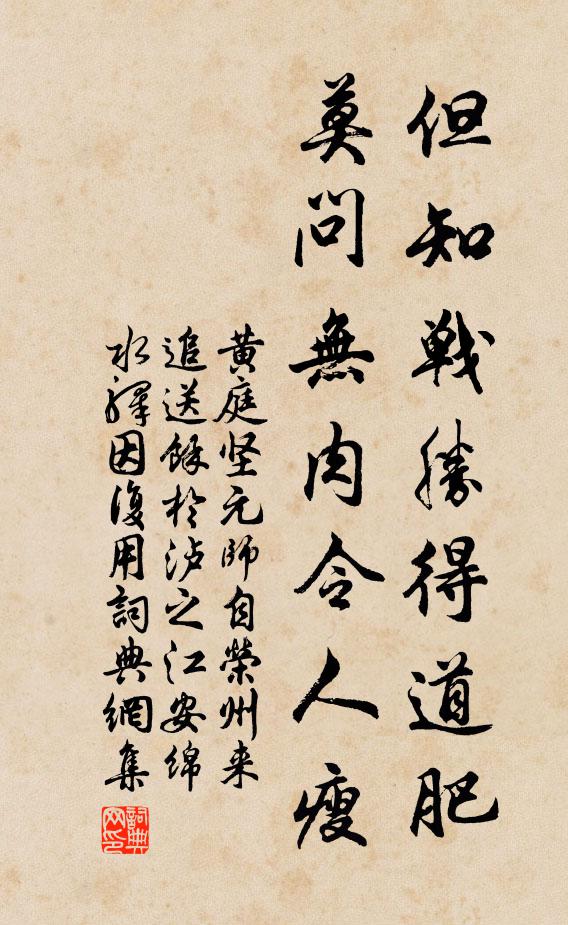 但知戰勝得道肥
莫問無肉令人瘦
黄庭坚元師自榮州来
追送餘於泸之江安绵
水驛因復用詞典網集
詞典
网印